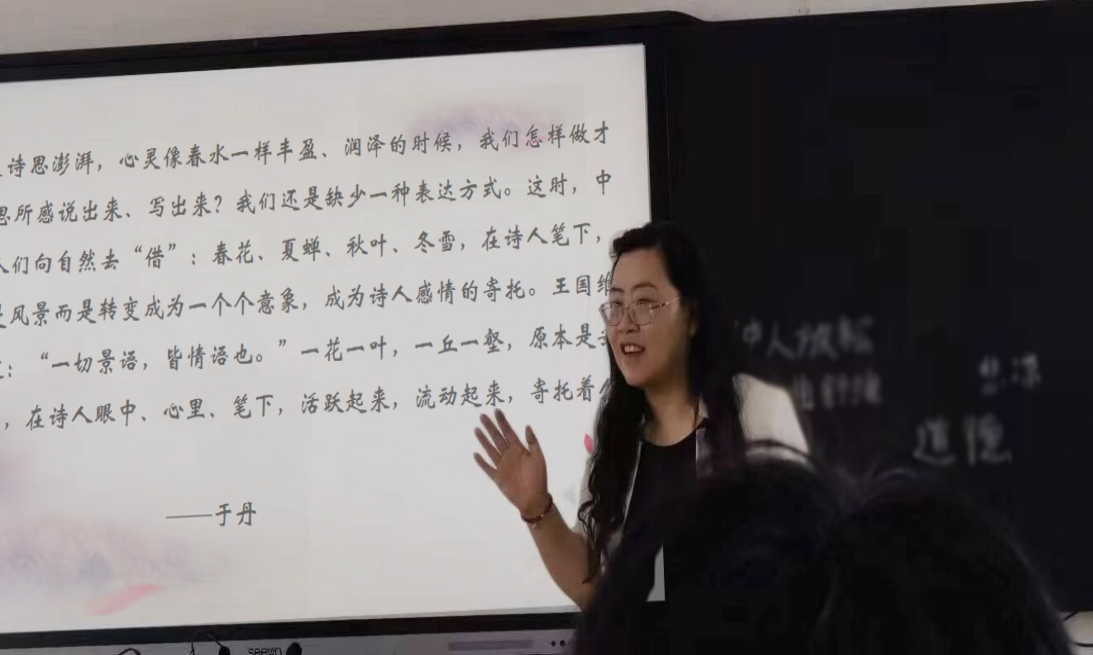 诗思澎湃，心灵像春水一样丰盈、润泽的时候，我们怎样做才
思所感说出来、写出来？我们还是缺少一种表达方式。这时，中
人们向自然去“借”：春花、夏蝉、秋叶、冬雪，在诗人笔下，
是风景而是转变成为一个个意象，成为诗人感情的寄托。王国维
：“一切景语，皆情语也。”一花一叶，一丘一壑，原本是
，在诗人眼中、心里、笔下，活跃起来，流动起来，寄托着
——于丹
人放松
悲凉
道德
seewo